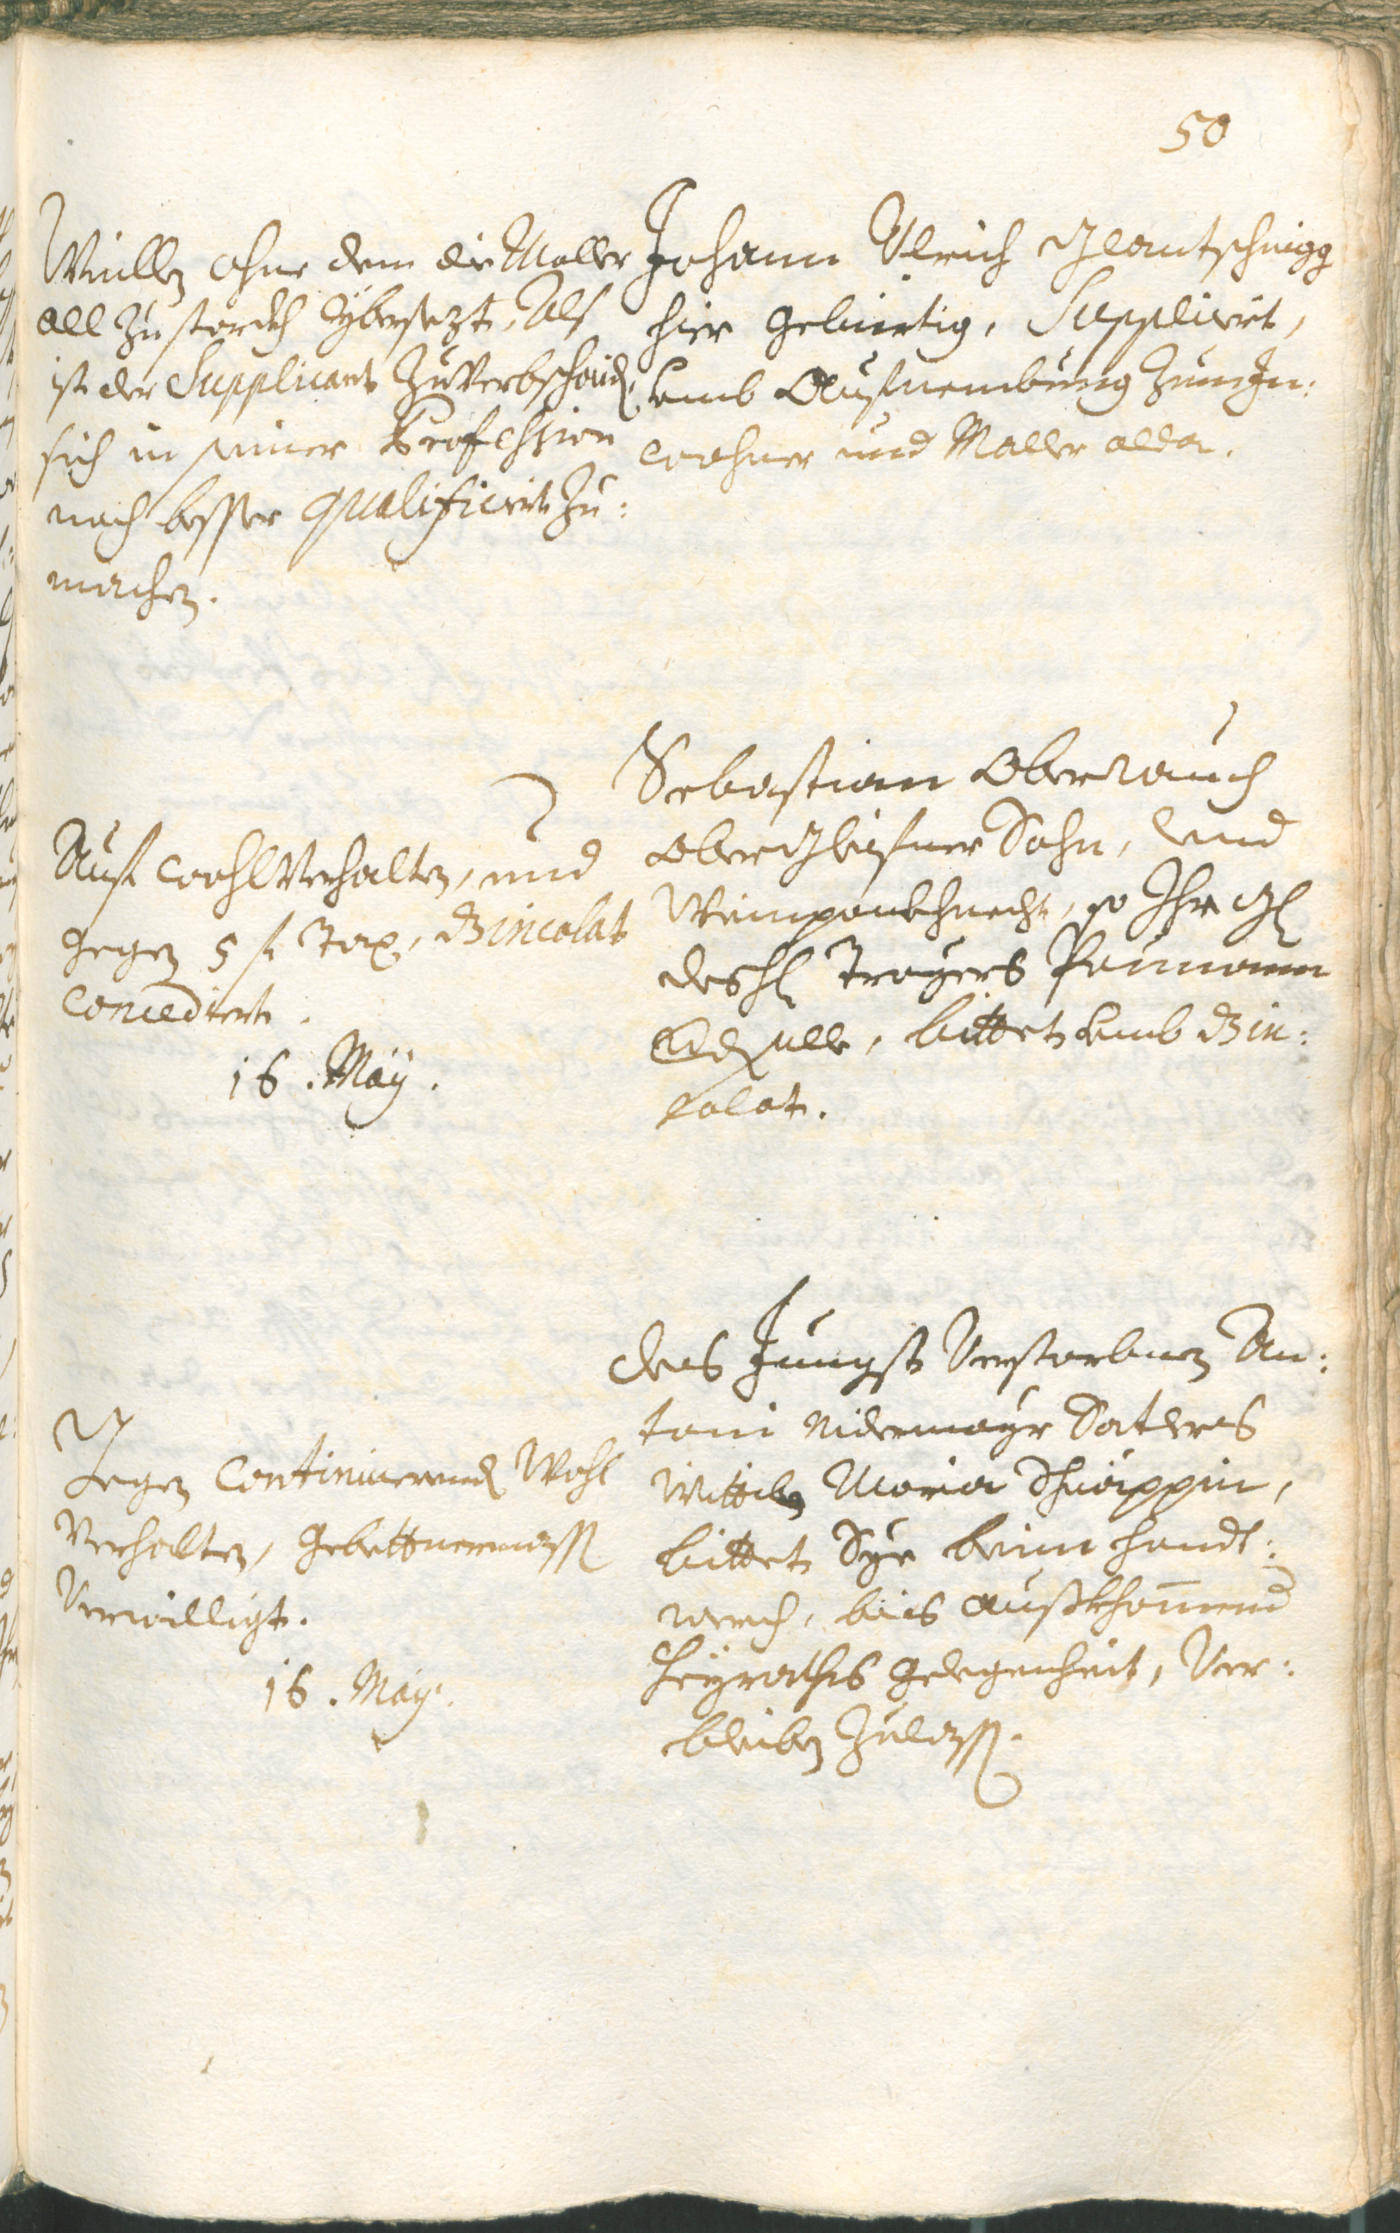 50
Weillen ohne dem die Maller
all zu starckh ybersezt, Als
ist der Supplicant zuverbschaiden,
sich in seiner Profession
noch besser qualificiert zu:
machen.
Johann Ulrich Glantschnigg
hier gebürtig, Supplicirt,
umb Aufnembung zum In:
wohner und Maller alda.
Auf wohlverhalten, und
gegen 5 f Tax, Bincolat
concediert.
16. May.
Sebastian Oberrauch
Sohn, und
so Ihr
dess H Troyers Paumann
bittet umb Bin:
colat.
Gegen Continuierend Wohl
Verhalten, gebettnermassen
Verwilligt.
16. May.
des Jungst Verstorbnen An:
toni Nidermayr Satlers
Wittib Maria
bittet Sye beim handt:
werch, bis außkhomend
heyraths gelegenheit, Ver:
bleiben zulassen.